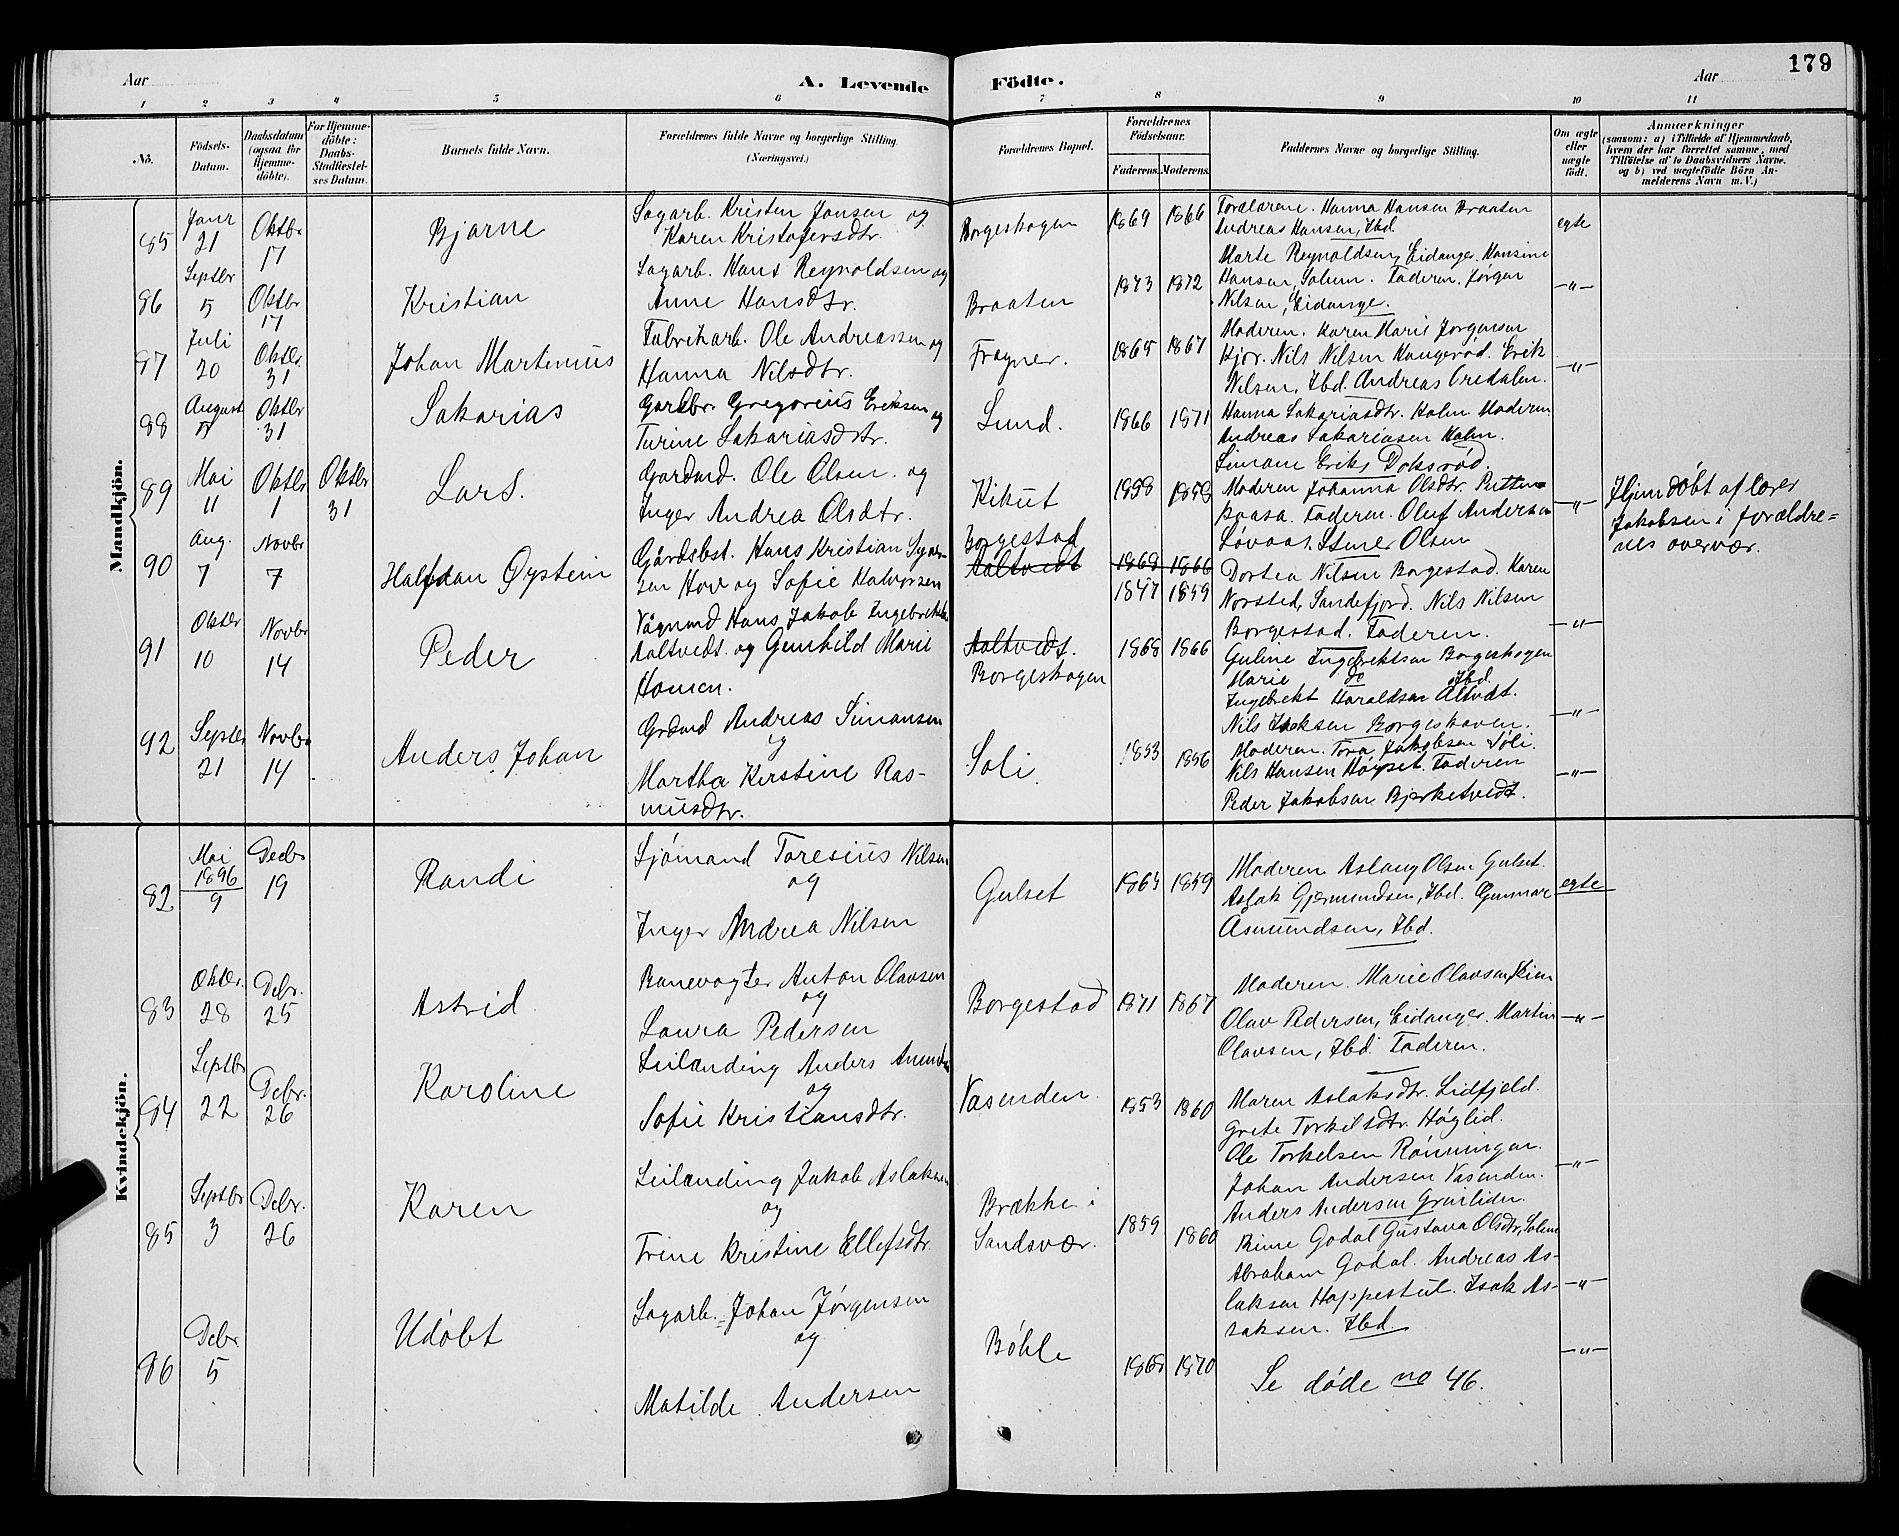 179
Aar
A. Levende
Födte.
Aar
1 2 3 4 5 6 7 8 9 10 11
No.
Födsels-Datum.
Daabsdatum (ogsaa for Hjemme-döbte).
For Hjemme-döbte: Daabs-Stadfæstel-ses Datum.
Barnets fulde Navn.
Forældrenes fulde Navne og borgerlige Stilling.
(Næringsvei.)
Forældrenes Bopæl.
Forældrenes Födselsaar.
Faderens. Moderens.
Faddernes Navne og borgerlige Stilling.
Om ægte eller uægte födt.
Anmærkninger
(saasom: a) i Tilfælde af Hjemmedaab,
hvem der har forrettet samme, med
Tilföielse af to Daabsvidners Navne.
og b) ved uægtefödte Börn An-
melderens Navn m. V.)
Mandkjön.
85 Janr 21 Oktbr 17 Bjarne
Sagarb. Kristen Jansen og
Karen Kristofersdtr.
Borgeskogen 1869 1866
Forældrene. Hanna Hansen Braaten
Andreas Hansen, Ibd.
egte
86 Septbr 5 Oktbr 17 Kristian
Sagarb. Hans Reynoldsen og
Anne Hansdtr.
Braaten 1873 1872
Marte Reynoldsen, Eidanger. Hansine
Hansen, Solum. Faderen. Jørgen
Nilsen, Eidange.
—"—
87 Juli 20 Oktbr. 31 Johan Martinius
Fabrikarb. Ole Andreassen og
Hanna Nilsdtr.
Frogner. 1865 1867
Moderen. Karen Marie Jørgensen
Kjør. Nils Nilsen Haugerød. Erik
Nilsen, Ibd. Andreas Credalen.
—"—
88 August Oktbr 31 Sakarias
Gardbr. Gregorius Eriksen og
Turine Sakariasdtr.
Lund. 1866 1871
Hanna Sakariasdtr. Holm Moderen
Andreas Sakariasen Holm.
Simane Eriks Doksrød.
89 Mai 11 Oktbr 1 Oktbr 31 Lars.
Gardmd. Ole Olsen. og
Inger Andrea Olsdtr.
Kikut 1858 1859
Moderen Johanna Olsdtr. Putten
paasa. Faderen. Oluf Andersen
Lovaas. Stiner Olsen
—"—
Hjemdøbt af lærer
Jakobsen i forældre=
nes overvær.
90 Aug. 7 Novbr 7 Halfdan Øystein
Gårdsbst. Hans Kristian Syver-
sen Hov og Sofie Halvorsen
Borgestad
Aaltvedt 1868 1866
1847 1859
Dortea Nilsen Borgestad. Karen
Norsted, Sandefjord. Nils Nilsen
Borgestad. Faderen.
—"—
91 Oktbr 10 Novbr 14 Peder
Vognmd Hans Jakob Ingebrektsen
Aaltvedt. og Gunhild Marie
Homen.
Aaltvedt. 1868 1866
Borgeskogen
Guline Ingebrektsen Borgeskogen
Marie do Ibd.
Ingebrekt Haraldsen Altvedt.
Nils Isaksen Borgeskoven.
—"—
92 Septbr 21 Novbr 14 Anders Johan
Grdmd Andreas Simonsen
og
Martha Kirstine Ras-
musdtr.
Soli 1853 1856
Moderen. Tora Jakobsen Søli.
Nils Hansen Høyset. Faderen
Peder Jakobsen Bjerketvedt.
—"—
Kvindekjön.
82 Mai 1896 9 Decbr 19 Randi
Sjömand Toresius Nilsen
og
Inger Andrea Nilsen
Gulset 1865 1859
Moderen Aslaug Olsen Gulset.
Aslak Gjermundsen, Ibd. Gunnar
Asmundsen, Ibd.
egte
83 Oktbr. 28 Debr. 25 Astrid
Banevogter Anton Olavsen
og
Laura Pedersen
Borgestad 1871 1867
Moderen. Marie Olavsen, Skien
Olav Pedersen, Eidanger. Martin
Olavsen, Ibd. Faderen.
—"—
84 Septbr 22 Debr. 26 Karoline
Leilænding Anders Amundsen
og
Sofie Kristiansdtr.
Vasenden. 1853 1860
Maren Aslaksdtr. Lidfjeld.
Grete Torkilsdtr. Høglid.
Ole Torkelsen Rønningen.
Johan Andersen Vasenden.
Anders Andersen Grønliden.
—"—
85 Septbr 3 Debr. 26 Karen
Leilænding Jakob Aslaksen
og
Trine Kristine Ellefsdtr.
Brække i
Sandsvær. 1859 1860
Rime Godal Gustava Olsdtr, Solum
Abraham Godal. Andreas As-
laksen Hoppestul. Isak As-
saksen. Ibd.
—"—
86 Debr 5 Udøbt
Sagarb. Johan Jørgensen
og
Matilde Andersen
Bøhle 1868 1870
Se døde no 46.
—"—